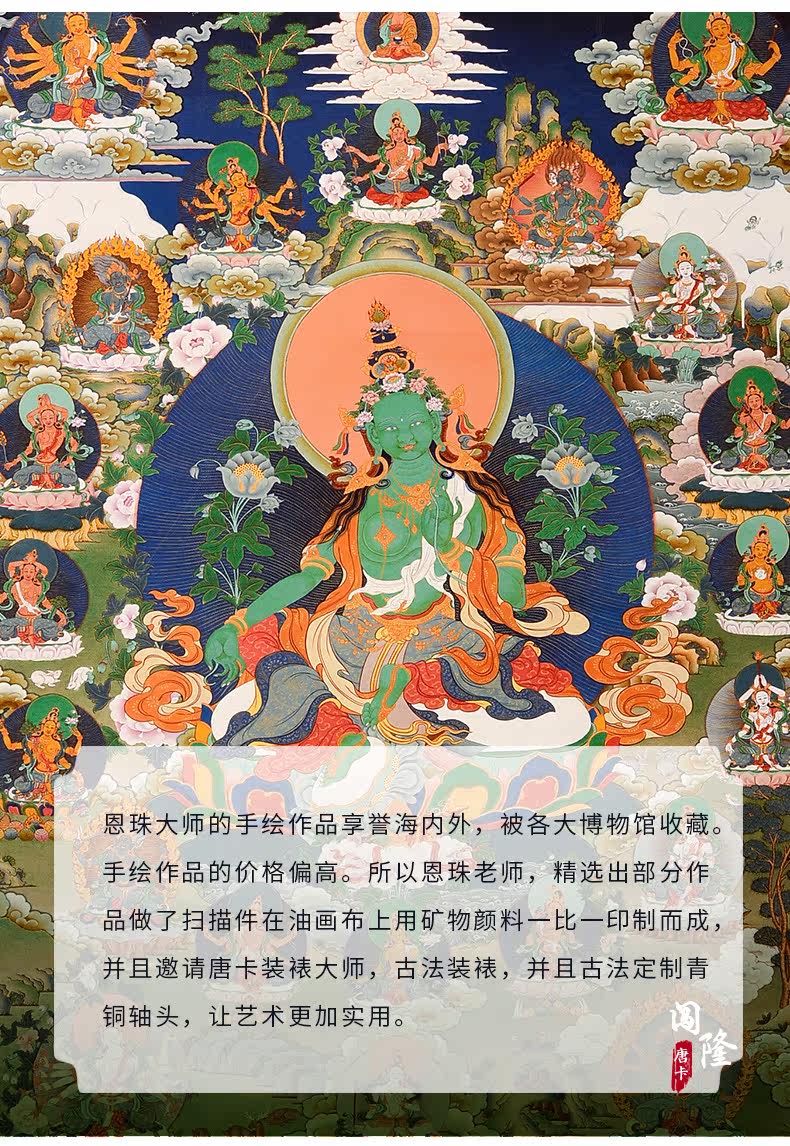 恩珠大师的手绘作品享誉海内外，被各大博物馆收藏。
手绘作品的价格偏高。所以恩珠老师，精选出部分作
品做了扫描件在油画布上用矿物颜料一比一印制而成，
并且邀请唐卡装裱大师，古法装裱，并且古法定制青
铜轴头，让艺术更加实用。
阅隆
唐卡